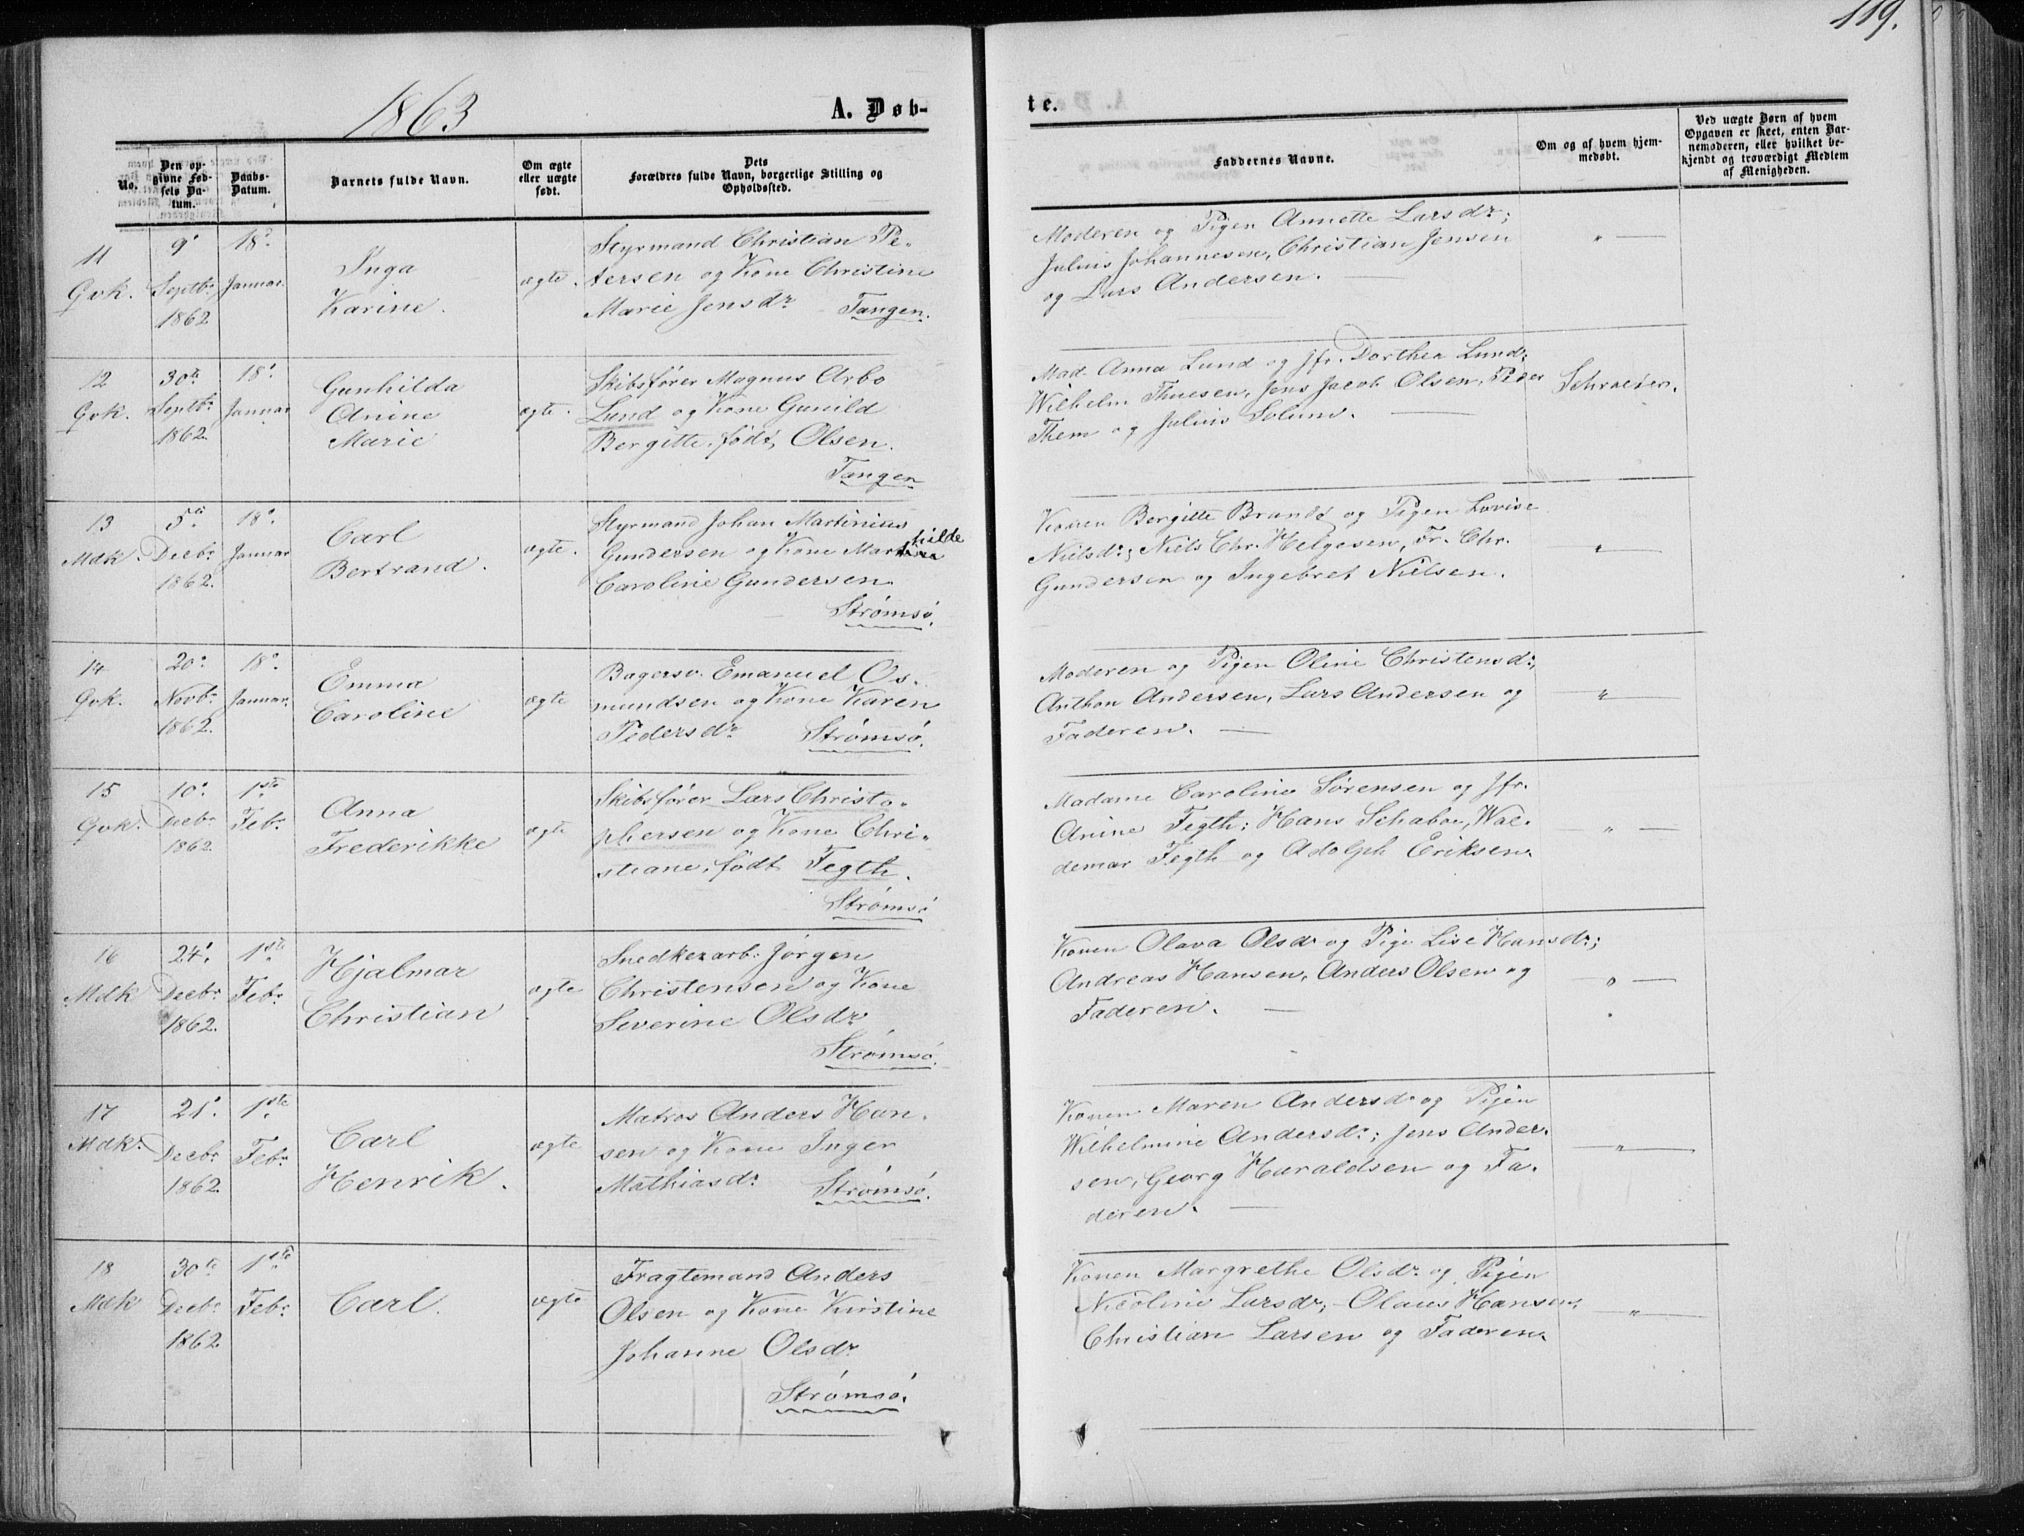 119.
1863
A. Døb-
te.
No.
Den op-
givne Fød-
sels Da-
tum.
Daabs-
Datum.
Barnets fulde Navn.
Om ægte
eller uægte
født.
Dets
Forældres fulde Navn, borgerlige Stilling og
Opholdssted.
Faddernes Navne.
Om og af hvem hjem-
medøbt.
Ved uægte Børn af hvem
Opgaven er skeet, enten Bar-
nemoderen, eller hvilket be-
kjendt og troværdigt Medlem
af Menigheden.
11
Qvk.
9de
Septbr
1862
18de
Januar.
Inga
Karine.
ægte.
Styrmand Christian Pe-
tersen og Kone Christine
Marie Jensdr
Tangen.
Moderen og Pigen Annette Larsdr;
Julius Johannesen, Christian Jensen
og Lars Andersen. —
" —
12
Qvk.
30te
Septbr
1862.
18de
Januar
Gunhilda
Anine
Marie
ægte.
Skibsfører Magnus Arbo
Lund og Kone Gunild
Bergitte, født, Olsen.
Tangen
Mad. Anna Lund og jfr. Dorthea Lund;
Wilhelm Thuesen, Jens Jacob Olsen, Peder
Them og Julius Solum. —
13
Mdk.
5te
Decbr
1862.
18de
Januar
Carl
Bertrand.
ægte.
Styrmand Johan Martinius
Gundersen og Kone Mat hilde
Caroline Gundersen
Strømsø.
Konen Bergitte Brandt og Pigen Lovise
Nielsdr; Niels Chr. Helgesen, Fr. Chr.
Gundersen og Ingebret Nielsen.
" —
14
Qvk.
20de
Novbr
1862.
18de
Januar.
Emma
Caroline
ægte
Bagersv. Emanuel Os-
mundsen og Kone Karen
Pedersdr
Strømsø.
Moderen og Pigen Oline Christensdr;
Anthon Andersen, Lars Andersen og
Faderen. —
" —
15
Qvk.
10de
Decbr
1862.
1ste
Febr
Anna
Frederikke
ægte
Skibsfører Lars Christo-
phersen og Kone Chri-
stiane, født Fegth.
Strømsø
Madame Caroline Sørensen og Jfr.
Anine Fegth; Hans Schabo, Wal-
demar Fegth og Adolph Eriksen.
" —
16
Mdk
24de
Decbr
1862.
1ste
Febr
Hjalmar
Christian
ægte
Snedkerarb. Jørgen
Christensen og Kone
Severine Olsdr
Strømsø.
Konen Olava Olsdr og Pige Lise Hansdr;
Andreas Hansen, Anders Olsen og
Faderen. —
" —
17
Mdk.
21de
Decbr
1862.
1ste
Febr
Carl
Henrik.
ægte
Matros Anders Han-
sen og Kone Inger
Mathiasdr
Strømsø.
Konen Maren Andersdr og Pigen
Wilhelmine Andersdr; Jens Ander-
sen, Georg Haraldsen og Fa-
deren. —
" —
18
Mdk
30te
Decbr
1862
1ste
Febr
Carl.
ægte
Fragtemand Anders
Olsen og Kone Kirstine
Johanne Olsdr
Strømsø.
Konen Margrethe Olsdr og Pigen
Nicoline Larsdr; Olaus Hansen,
Christian Larsen og Faderen.
" —